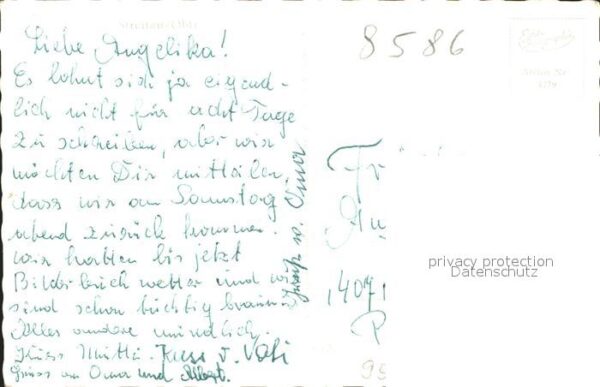 Liebe Angelika!
Es lohnt sich ja eigend-
lich nicht für acht Tage
zu schreiben, aber wir
möchten Dir mitteilen,
dass wir am Sonnstag
abend zurück kommen.
Wir hatten bis jetzt
Bilderbuch wetter und wir
sind schon tüchtig braun.
Alles andere mündlich.
Kuss Mutti. Kuss v. Vati
Gruss an Oma und Albert.
Oma
8586
Fr
An
1407
P
privacy protection
Datenschutz